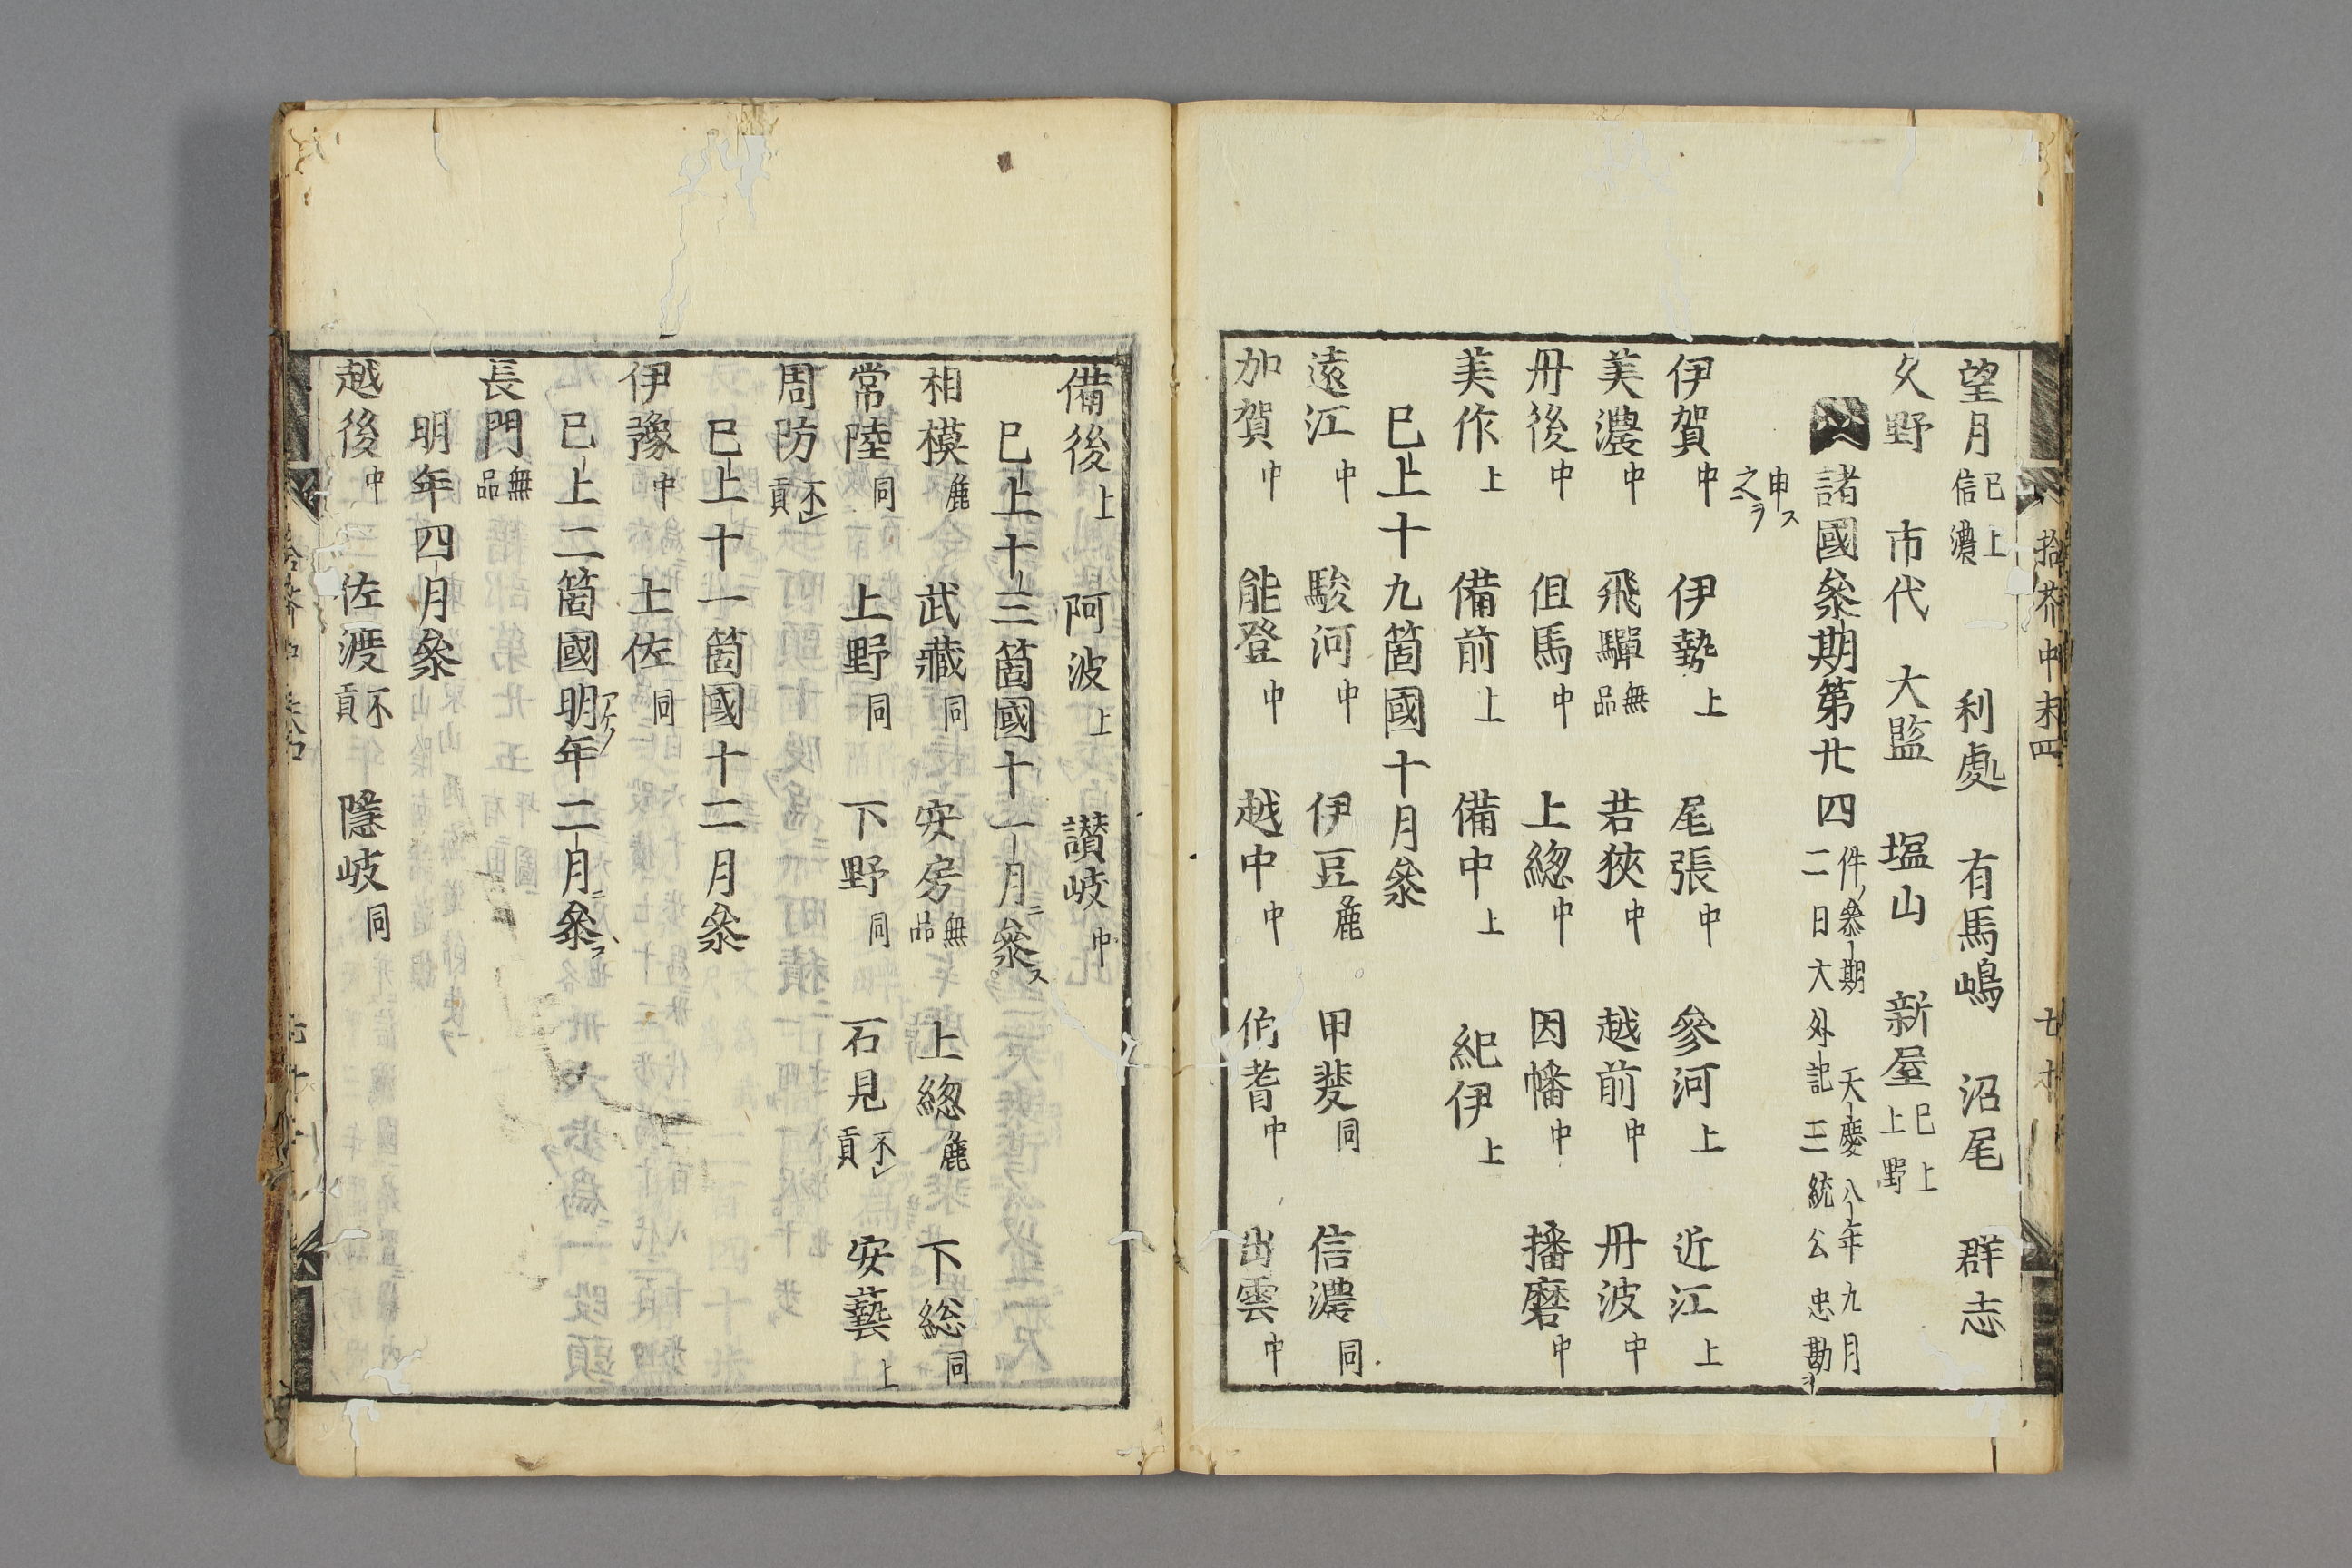 望月 已上信濃 利處 有馬嶋 沼尾 群志
久野 市代 大監 塩山 新屋 已上上野
諸國叅期第廿四 件ノ叅期 天慶八年九月二日大外記三統公忠勘
申ス之ヲ
伊賀中 伊勢上 尾張中 參河上 近江上
美濃中 飛驒無品 若狹中 越前中 丹波中
丹後中 但馬中 上緫中 因幡中 播磨中
美作上 備前上 備中上 紀伊上
已上十九箇國十月叅
遠江中 駿河中 伊豆麁 甲斐同 信濃同
加賀中 能登中 越中中 伯耆中 出雲中
拾芥中末四 七十
備後上 阿波上 讃岐中
已上十三箇國十一月ニ叅ス
相模麁 武藏同 安房無品 上緫麁 下総同
常陸同 上野同 下野同 石見不貢 安藝上
周防不貢
已上十一箇國十二月叅
伊豫中 土佐同
已上二箇國明年二月ニ叅ス
長門無品
明年四月叅
越後中 佐渡不貢 隱岐同